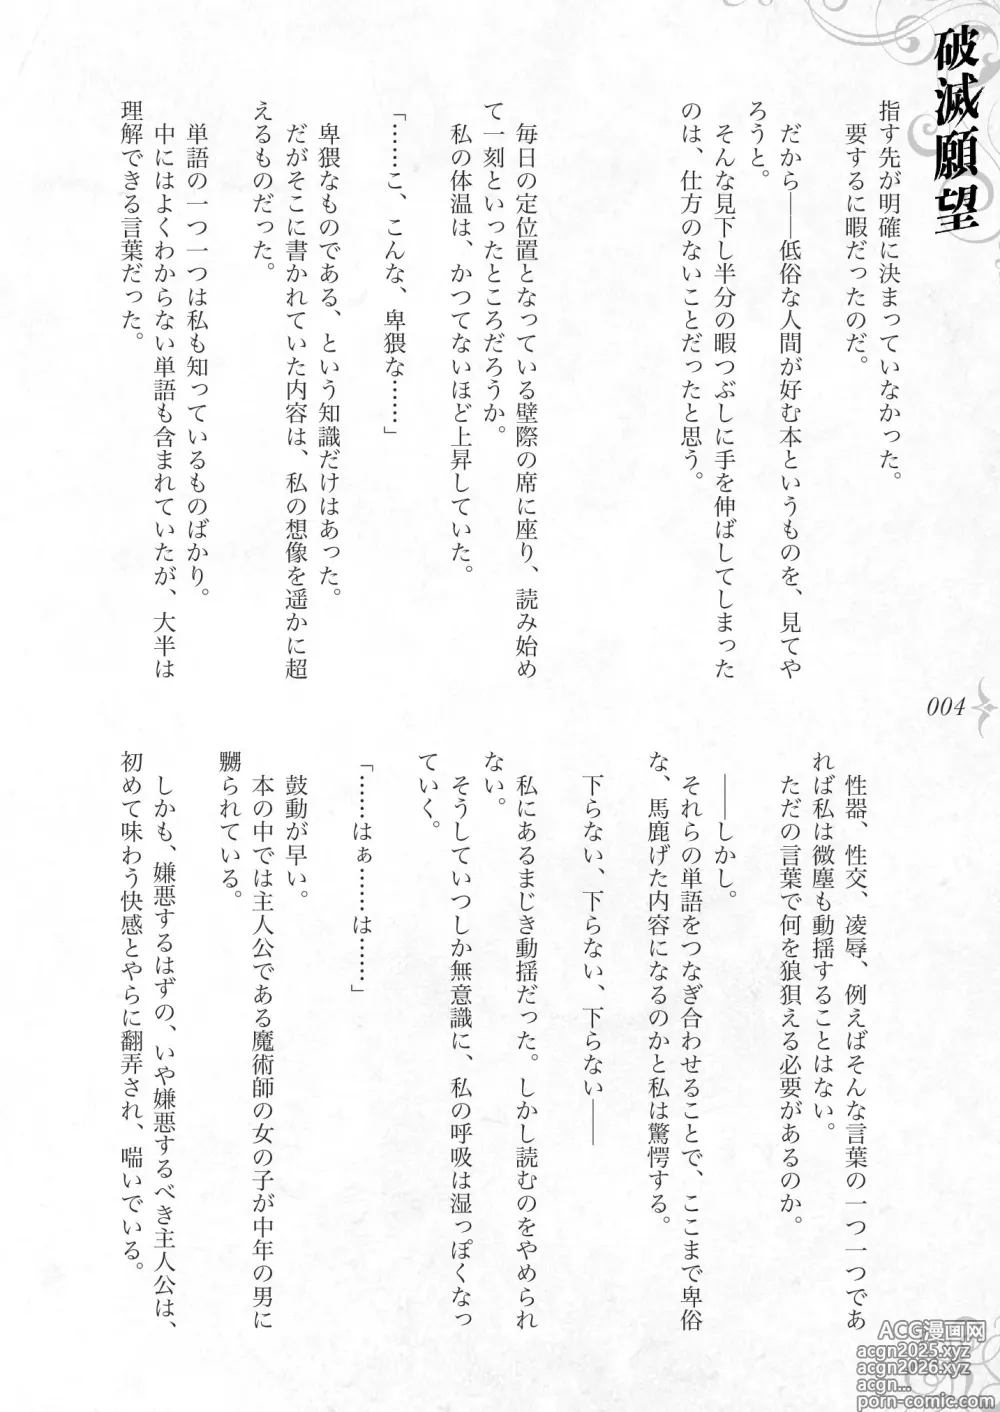 破滅願望
指す先が明確に決まっていなかった。
要するに暇だったのだ。
だから――低俗な人間が好む本というものを、見てや
ろうと。
そんな見下し半分の暇つぶしに手を伸ばしてしまった
のは、仕方のないことだったと思う。
毎日の定位置となっている壁際の席に座り、読み始め
て一刻といったところだろうか。
私の体温は、かつてないほど上昇していた。
「……こ、こんな、卑猥な……」
卑猥なものである、という知識だけはあった。
だがそこに書かれていた内容は、私の想像を遥かに超
えるものだった。
単語の一つ一つは私も知っているものばかり。
中にはよくわからない単語も含まれていたが、大半は
理解できる言葉だった。
004
性器、性交、凌辱、例えばそんな言葉の一つ一つであ
れば私は微塵も動揺することはない。
ただの言葉で何を狼狽える必要があるのか。
――しかし。
それらの単語をつなぎ合わせることで、ここまで卑俗
な、馬鹿げた内容になるのかと私は驚愕する。
下らない、下らない、下らない――
私にあるまじき動揺だった。しかし読むのをやめられ
ない。
そうしていつしか無意識に、私の呼吸は湿っぽくなっ
ていく。
「……はぁ……は……」
鼓動が早い。
本の中では主人公である魔術師の女の子が中年の男に
嬲られている。
しかも、嫌悪するはずの、いや嫌悪するべき主人公は、
初めて味わう快感とやらに翻弄され、喘いでいる。
ACG漫画网
acgn2025.xyz
acgn2026.xyz
acgn...
porn-comic.com